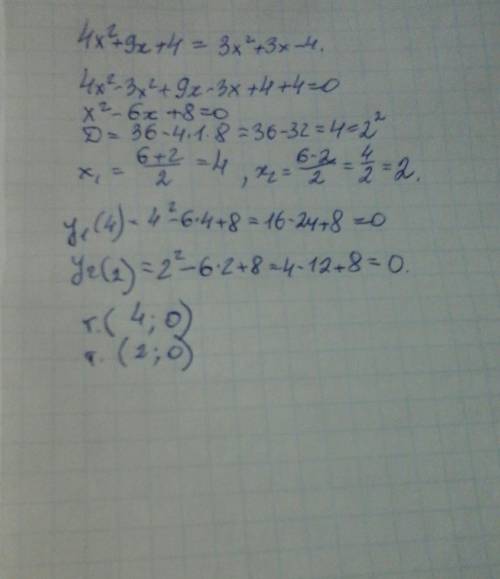 4x²+9x+4 = 3x²+3x-4.
4x²-3x²+9x-3x+4+4=0
x²-6x+8=0
D = 36-4·1·8=36-32=4=2²
x₁ = (6+2)/2 = 4, x₂ = (6-2)/2 = 4/2 = 2.
y₁(4) = 4²-6·4+8=16-24+8=0
y₂(2)=2²-6·2+8=4-12+8=0.
т.(4;0)
т.(2;0)